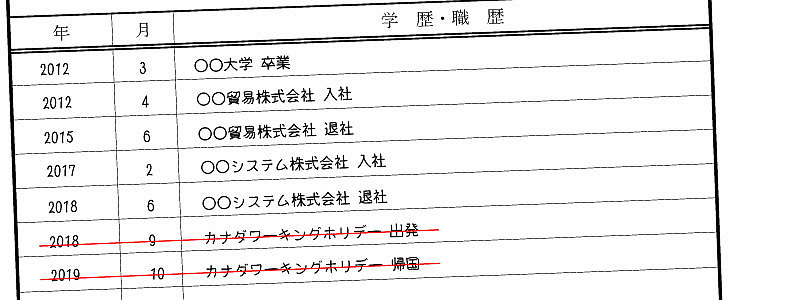 年 月 学 歴・職 歴
2012 3 〇〇大学 卒業
2012 4 〇〇貿易株式会社 入社
2015 6 〇〇貿易株式会社 退社
2017 2 〇〇システム株式会社 入社
2018 6 〇〇システム株式会社 退社
2018 9 カナダワーキングホリデー 出発
2019 10 カナダワーキングホリデー 帰国